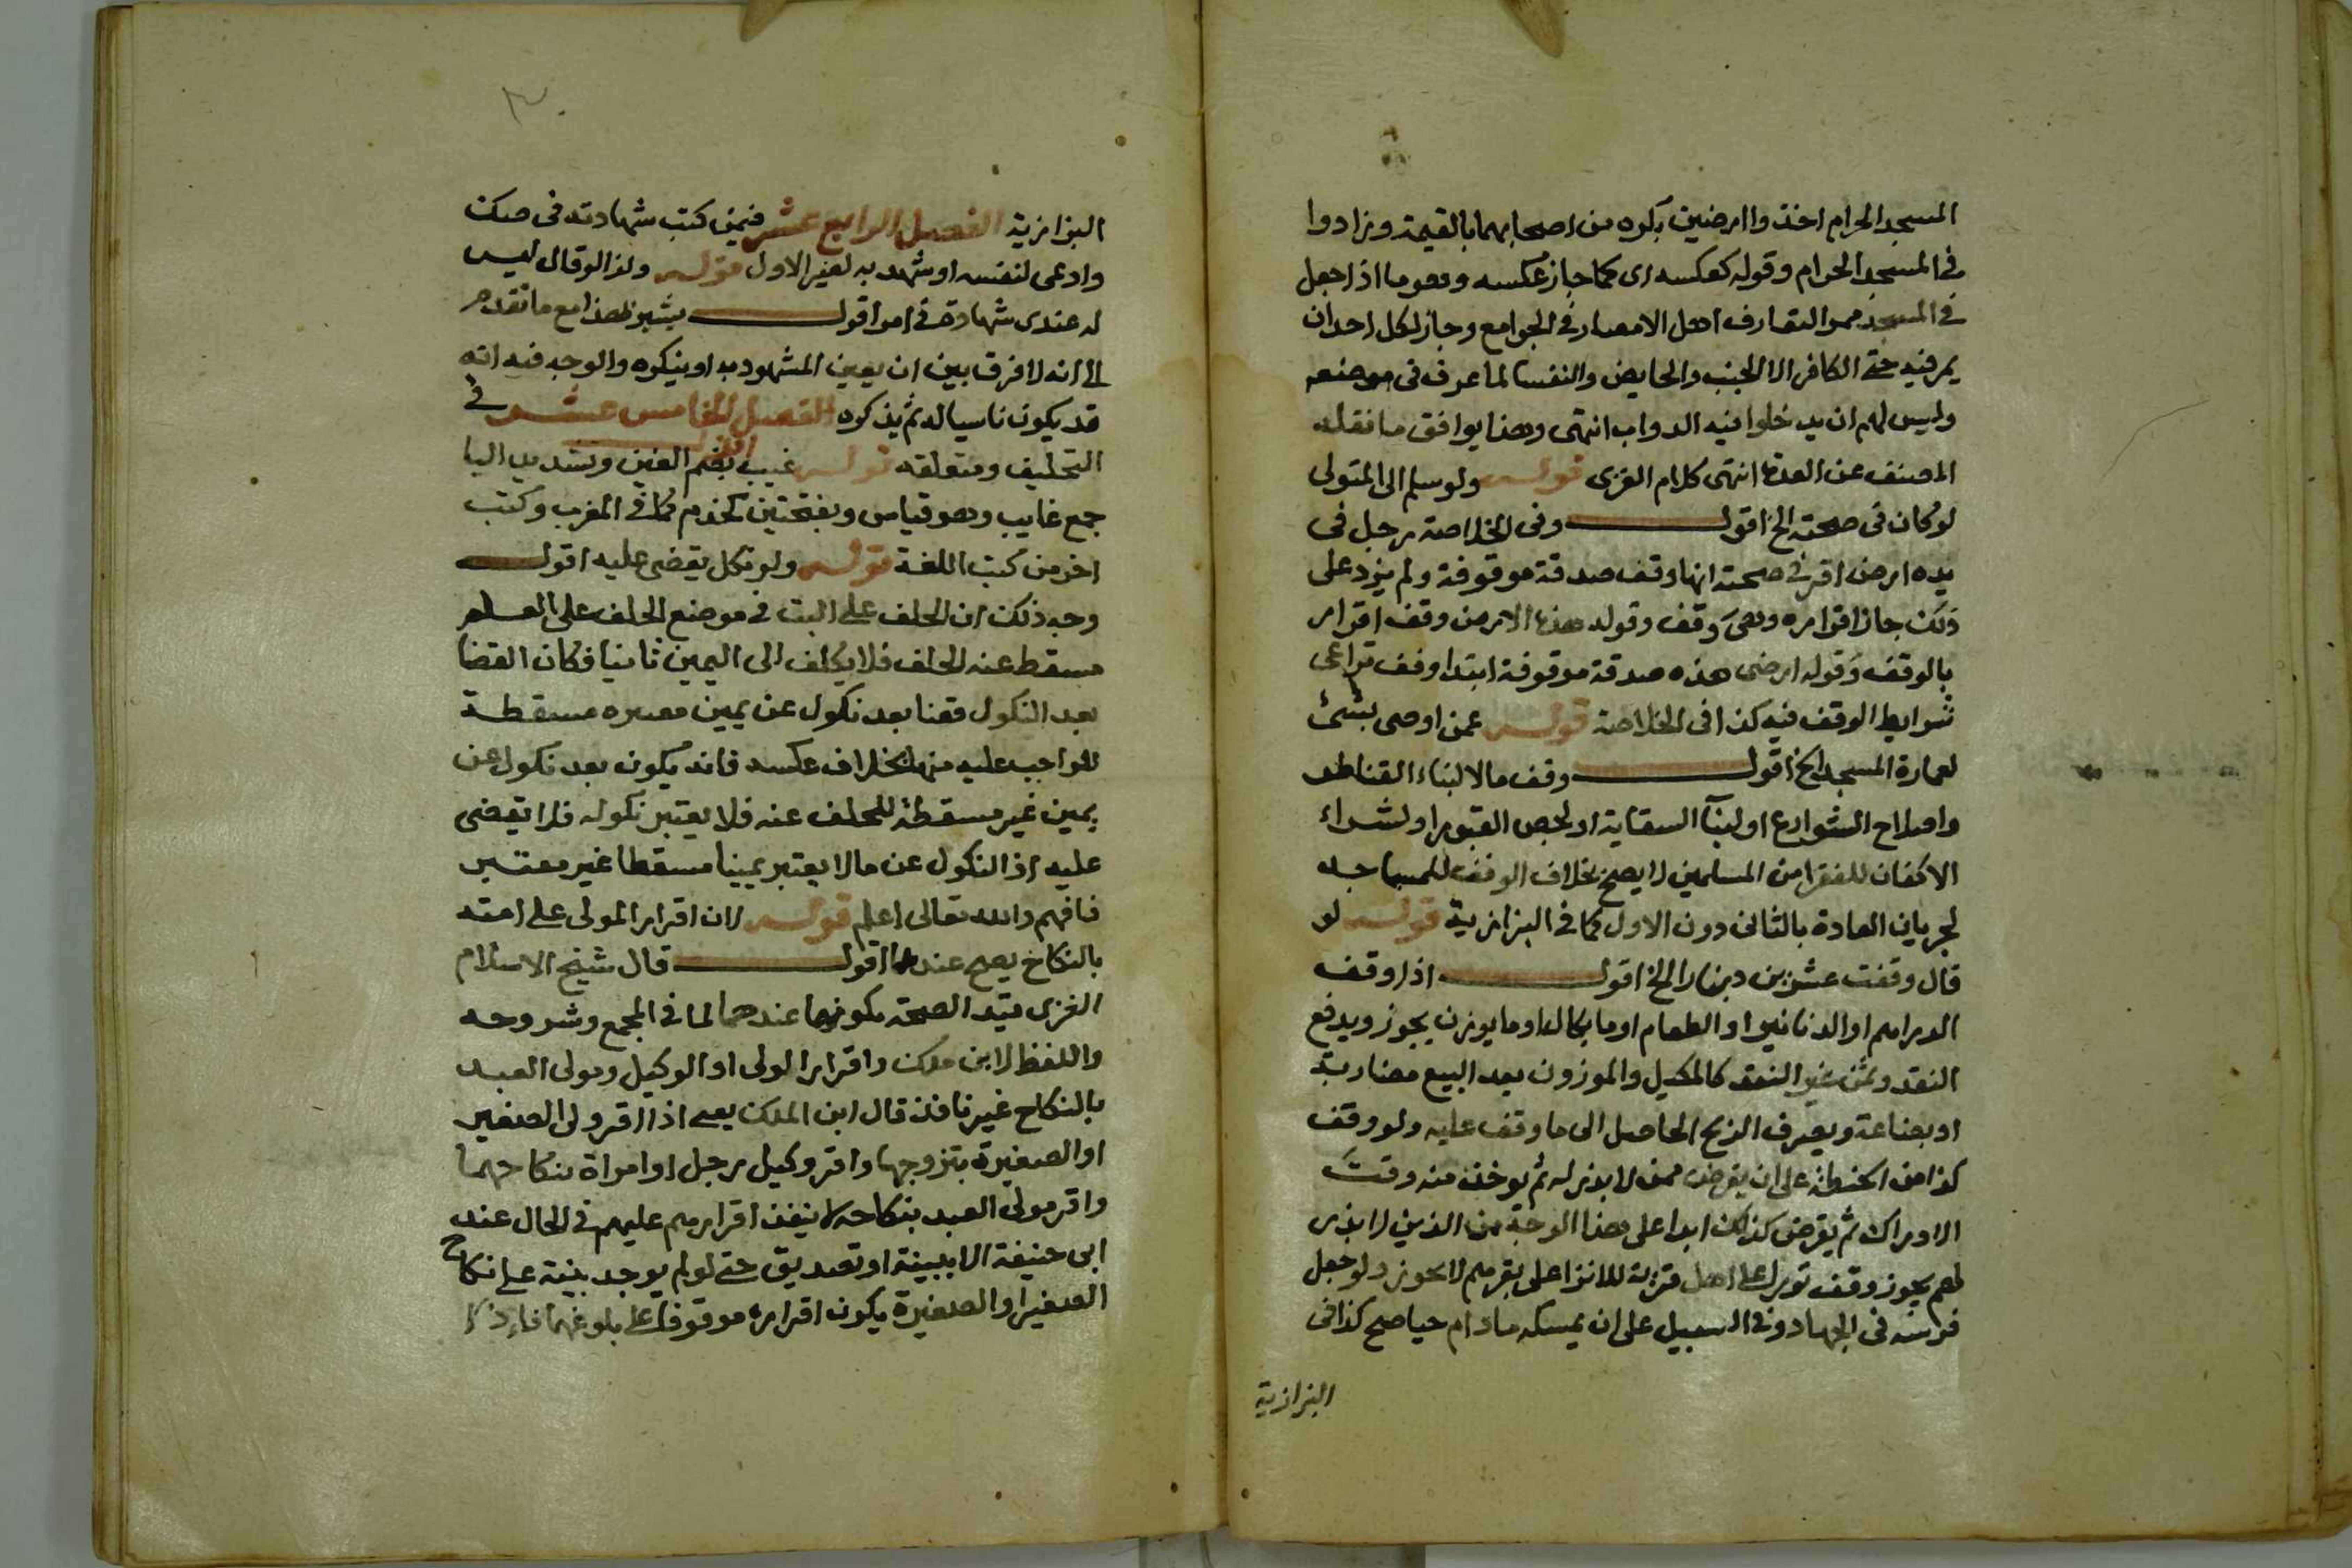 المسجد الحرام اخذوا ارضين بكره من اصحابهما بالقيمة وزادوا
في المسجد الحرام وقوله كعكسه اى كما جاز عكسه وهو ما اذا جعل
في المسجد ممر التعارف اهل الامصار في الجوامع وجاز لكل احد ان
يمر فيه حتى الكافر الا الجنب والحايض والنفسا لما عرف في موضعه
وليس لهم ان يدخلوا فيه الدواب انتهى وهذا يوافق ما نقله
المصنف عن العدة انتهى كلام الغزى قوله ولو سلم الى المتولى
لو كان في صحته الخ اقول وفي الخلاصة رجل في
يده ارض اقر في صحته انها وقف صدقة موقوفة ولم يزد على
ذلك جاز اقراره وهى وقف وقوله هذه الارض وقف اقرار
بالوقف وقوله ارضى هذه صدقة موقوفة ابتدا وقف تراعى
شرايط الوقف فيه كذا في الخلاصة قوله عمن اوصى بشئ
لعمارة المسجد الخ اقول وقف مالا لبناء القناطر
واصلاح الشوارع او لبنآ السقاية او لجص القبور او لشراء
الاكفان للفقرا من المسلمين لا يصح بخلاف الوقف للمساجد
لجريان العادة بالثانى دون الاول كما في البزازية قوله لو
قال وقفت عشرين دينارا الخ اقول اذا وقف
الدراهم او الدنانير او الطعام او ما يكال او ما يوزن يجوز ويدفع
النقد وثمن غير النقد كالمكيل والموزون بعد البيع مضاربة
او بضاعة ويصرف الربح الحاصل الى ما وقف عليه ولو وقف
كذا من الحنطة على ان يقرض ممن لا بذر له ثم يوخذ منه وقت
الادراك ثم يقرض كذلك ابدا على هذا الوجه من الذين لا بذر
لهم يجوز وقف ثورا على اهل قرية للانزا على بقرهم لا يجوز ولو جعل
فرسه في الجهاد وفي السبيل على ان يمسكه ما دام حيا صح كذا في
البزازية
٣٠
البزازية الفصل الرابع عشر فيمن كتب شهادته في صك
وادعى لنفسه او شهد به لغير الاول قوله ولذا لو قال ليس
له عندى شهادة في امر اقول يشير هذا مع ما تقدم
الى انه لا فرق بين ان يعين المشهود به او ينكره والوجه فيه انه
قد يكون ناسيا له ثم يذكره الفصل الخامس عشر في
التحليف ومتعلقه قوله غيب اقول بضم الغين وتشديد اليا
جمع غايب وهو قياس وبفتحتين كخدم كما في المغرب وكتب
اخر من كتب اللغة قوله ولو نكل يقضى عليه اقول
وجه ذلك ان الحلف على البت في موضع الحلف على العلم
مسقط عنه الحلف فلا يكلف الى اليمين ثانيا فكان القضا
بعد النكول قضا بعد نكول عن يمين معتبره مسقطة
للواجب عليه منها بخلاف عكسه فانه يكون بعد نكول عن
يمين غير مسقطة للحلف عنه فلا يعتبر نكوله فلا يقضى
عليه اذ النكول عن ما لا يعتبر يمينا مسقطا غير معتبر
فافهم والله تعالى اعلم قوله لان اقرار المولى على امته
بالنكاح يصح عندهما اقول قال شيخ الاسلام
الغزى قيد الصحة بكونها عندهما لما في المجمع وشروحه
واللفظ لابن ملك واقرار الولى او الوكيل ومولى العبد
بالنكاح غير نافذ قال ابن الملك يعنى اذا اقر ولى الصغير
او الصغيرة بتزوجها واقر وكيل رجل او امراة بنكاحهما
واقر مولى العبد بنكاحه لا ينفذ اقرارهم عليهم في الحال عند
ابى حنيفة الا ببينة او تصديق حتى لو لم يوجد بينة على نكاح
الصغير او الصغيرة يكون اقراره موقوفا على بلوغهما فاذا